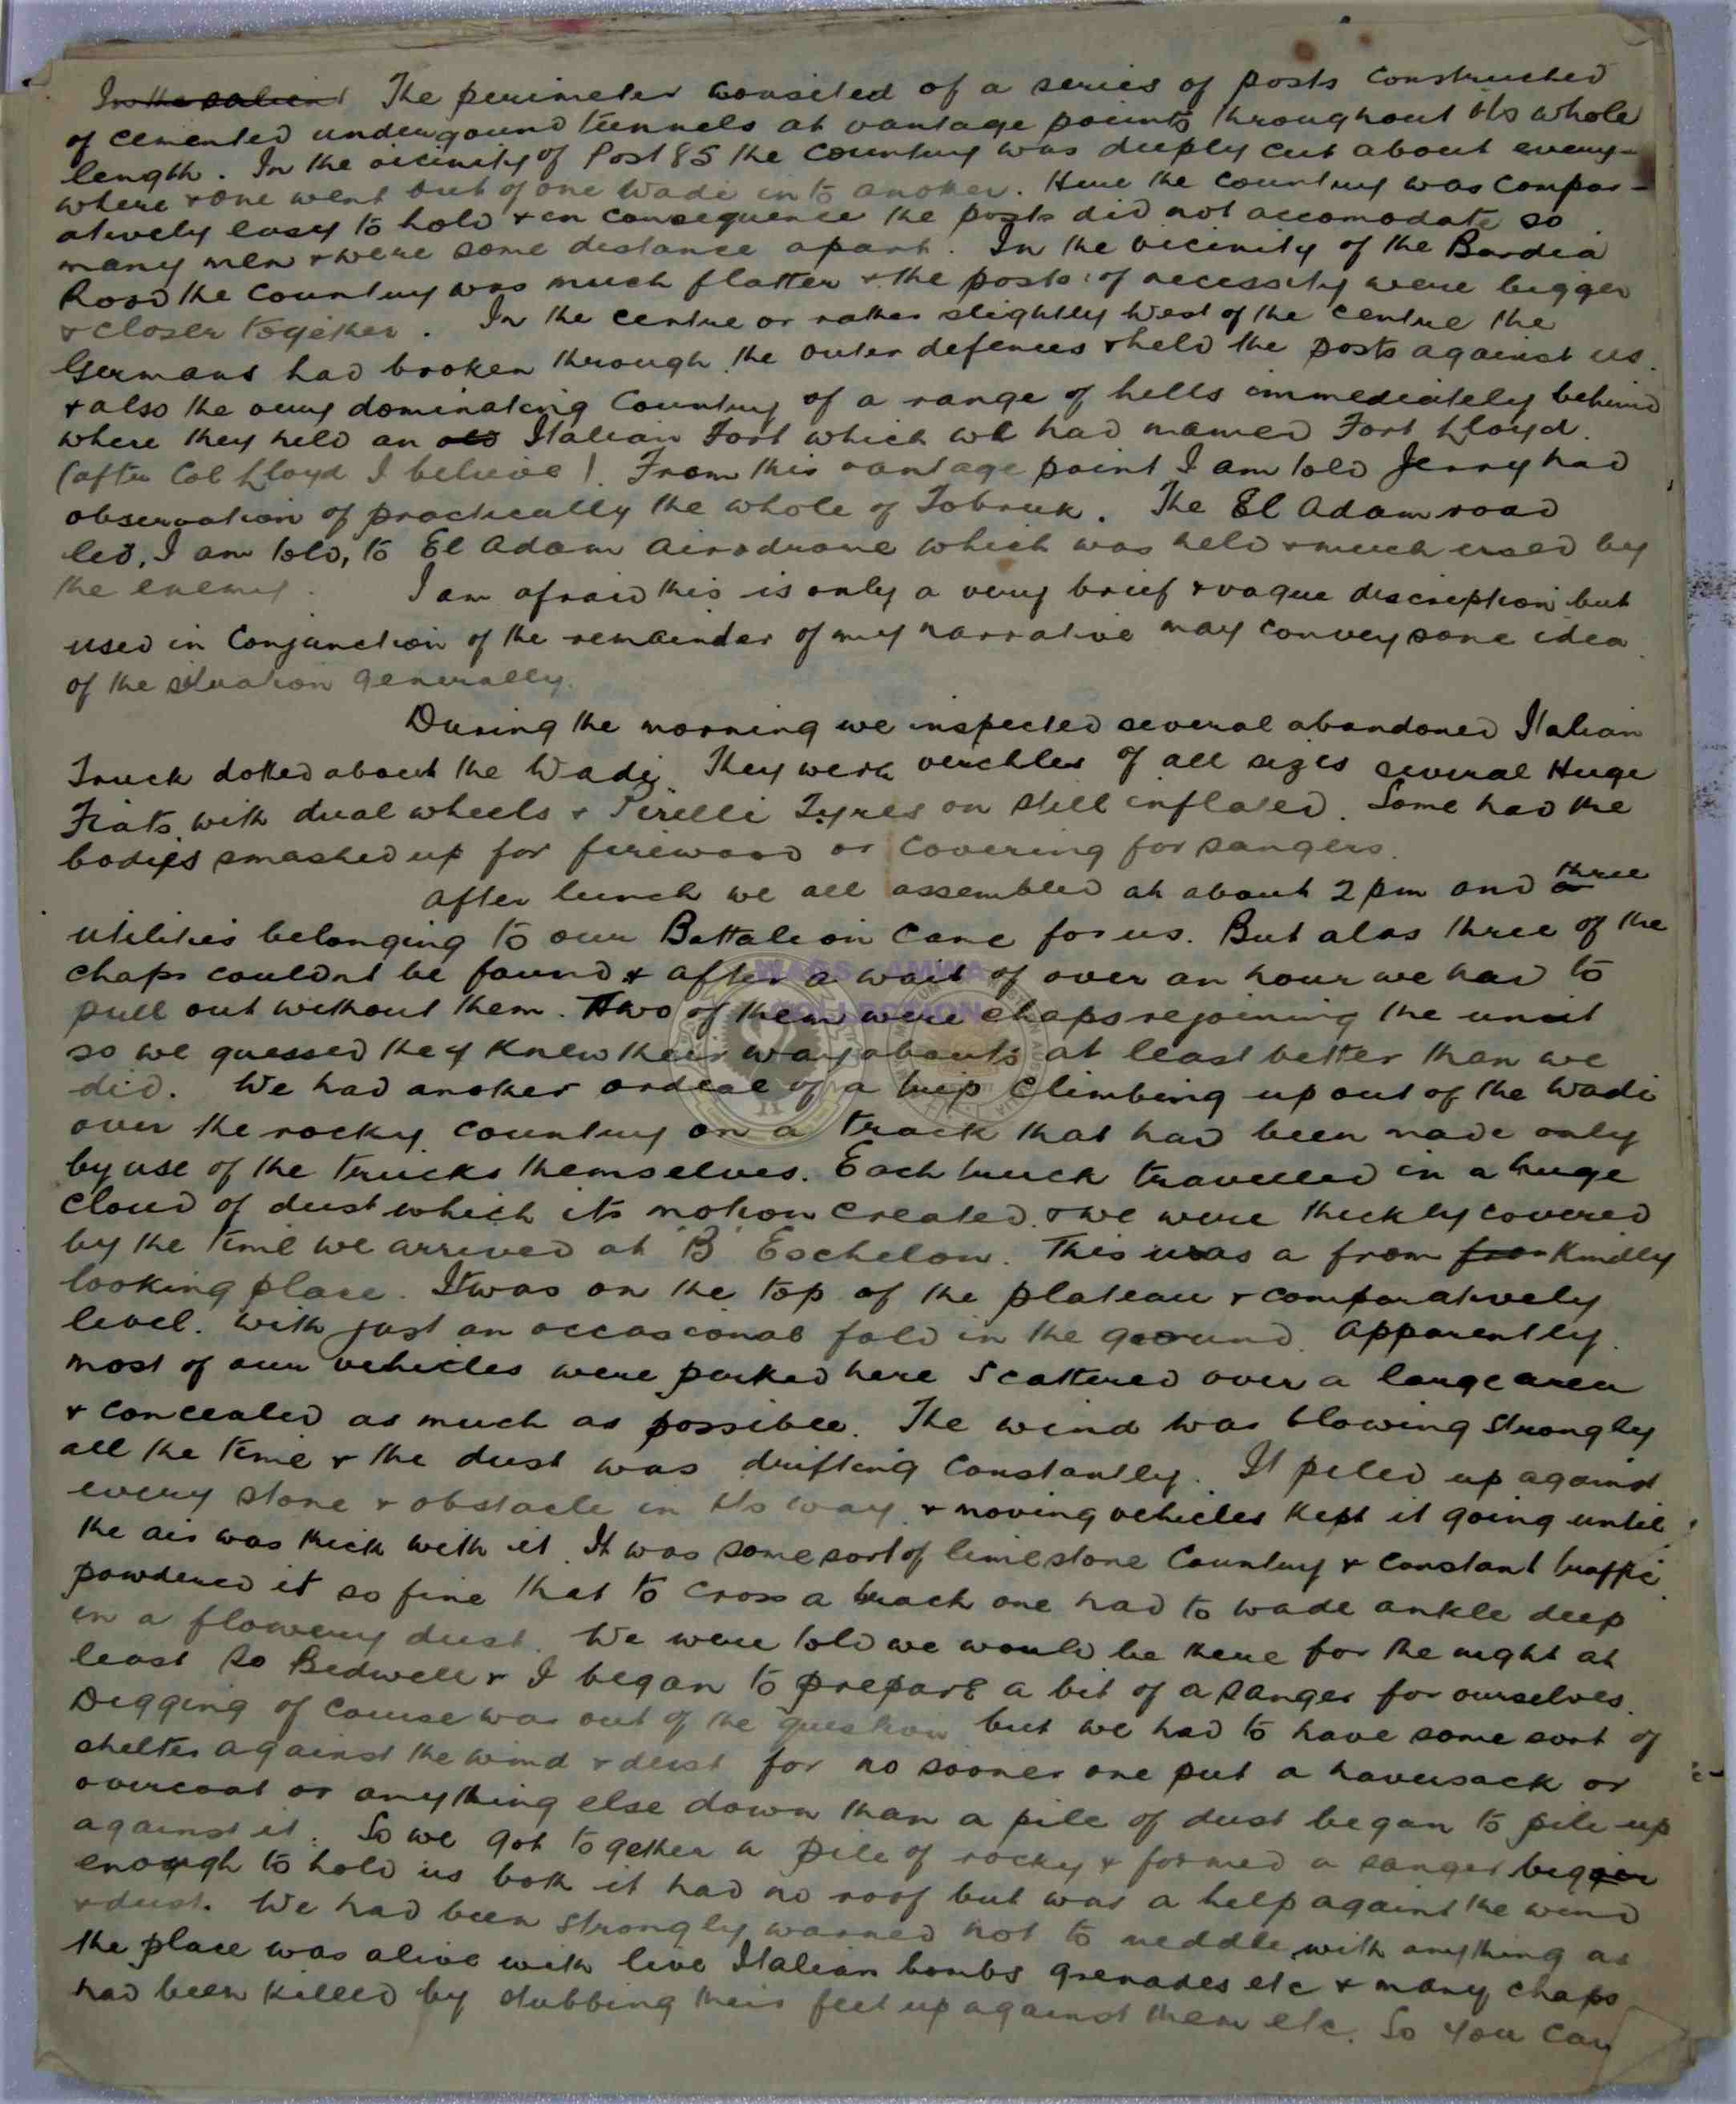 ~~In the salient~~ The perimeter consited of a series of posts constructed
of cemented undergound tunnels at vantage points throughout its whole
length. In the vicinity of Post 85 the country was deeply cut about every-
where & one went out of one Wadi into anoker. Here the country was compar-
atively easy to hold & in consequence the posts did not accomodate so
many men & were some distance apart. In the vicinity of the Bardia
Road the country was much flatter & the posts of necessity were bigger
& closer together. In the centre or rather slightly West of the centre the
Germans had broken through the outer defences & held the posts against us
& also the very dominating Country of a range of hills immediately behind
where they held an ~~old~~ Italian Fort which we had named Fort Lloyd.
(after Col Lloyd I believe). From this vantage point I am told Jerry had
observation of practically the whole of Tobruk. The El Adam road
led, I am told, to El Adam Airodrome which was held & much used by
the enemy. I am afraid this is only a very brief & vague discription but
used in Conjunction of the remainder of my narrative may convey some idea
of the situation generally.
During the morning we inspected several abandoned Italian
Truck dotted about the Wadi. They were veichles of all sizes several Huge
Fiats with dual wheels & Pirelli Tyres on still inflated. Some had the
bodies smashed up for firewood or covering for sangers.
After lunch we all assembled at about 2 pm and ~~a~~ three
utilities belonging to our Battalion came for us. But alas three of the
chaps couldnt be found & after a wait of over an hour we had to
pull out without them. Two of them were chaps rejoining the unit
so we guessed they knew their way abouts at least better than we
did. We had another ordeal of a trip climbing up out of the Wadi
over the rocky country on a track that had been made only
by use of the trucks themselves. Each truck travelled in a huge
cloud of dust which its motion created & we were thickly covered
by the time we arrived at "B" Eschelon. This was a from ~~from~~ Kindly
looking place. It was on the top of the plateau & comparatively
level. With just an occasional fold in the ground. Apparently
most of our vehicles were parked here scattered over a large area
& concealed as much as possible. The wind was blowing strongly
all the time & the dust was drifting constantly. It piled up against
every stone & obstacle in its way & moving vehicles kept it going until
the air was thick with it. It was some sort of limestone Country & constant traffic
powdered it so fine that to cross a track one had to wade ankle deep
in a flowery dust. We were told we would be there for the night at
least so Bedwell & I began to prepare a bit of a sanger for ourselves.
Digging of course was out of the question but we had to have some sort of
shelter against the wind & dust for no sooner one put a haversack or
overcoat or anything else down than a pile of dust began to pile up
against it. So we got together a pile of rocky & formed a sanger big~~ger~~
enough to hold us both it had no roof but was a help against the wind
& dust. We had been strongly warned not to meddle with anything as
the place was alive with live Italian bombs grenades etc & many chaps
had been killed by stubbing their feet up against them etc. So you can
WAGS AMWA
COLLECTION